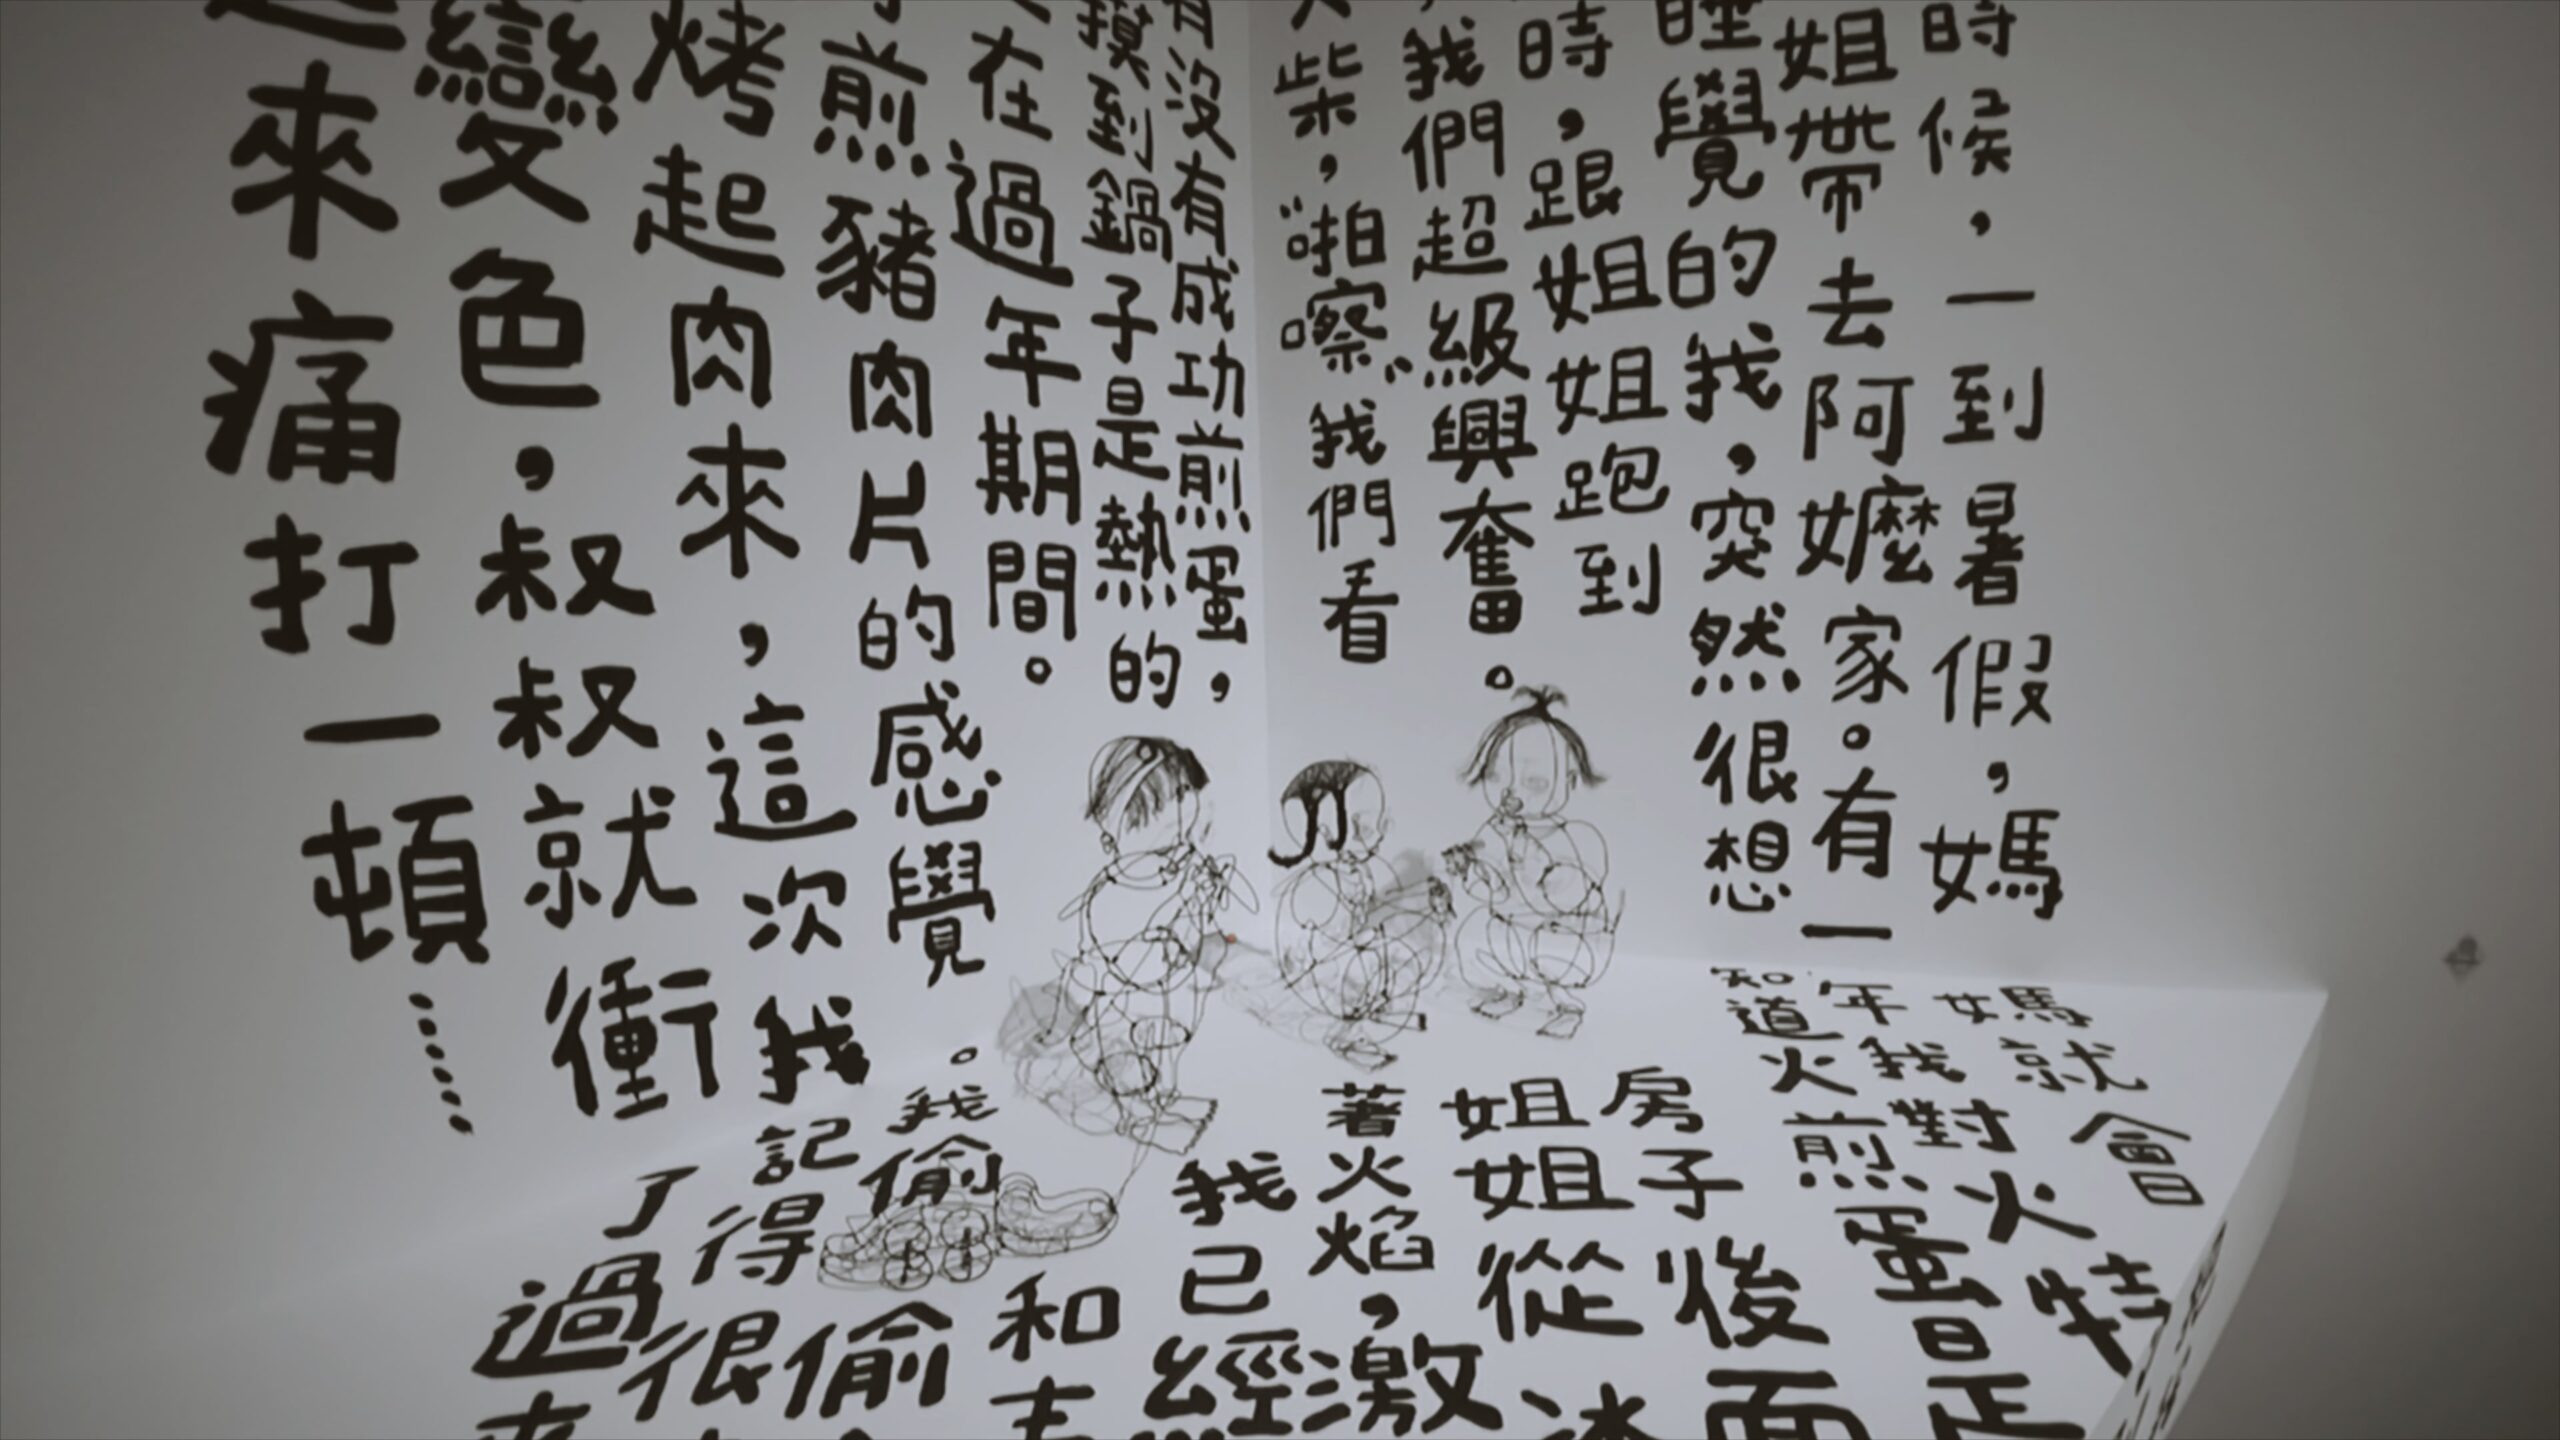 時候，一到暑假，媽媽就會
姐帶去阿嬤家。有一年我對火特
睡覺的我，突然很想知道火煎蛋是
時，跟姐姐跑到房子後面
我們超級興奮。姐姐從
柴，"啪嚓"我們看著火焰，激
有沒有成功煎蛋，我已經
摸到鍋子是熱的和
在過年期間。
煎豬肉片的感覺。我偷偷
烤起肉來，這次我記得很
變色，叔叔就衝了過來
起來痛打一頓……